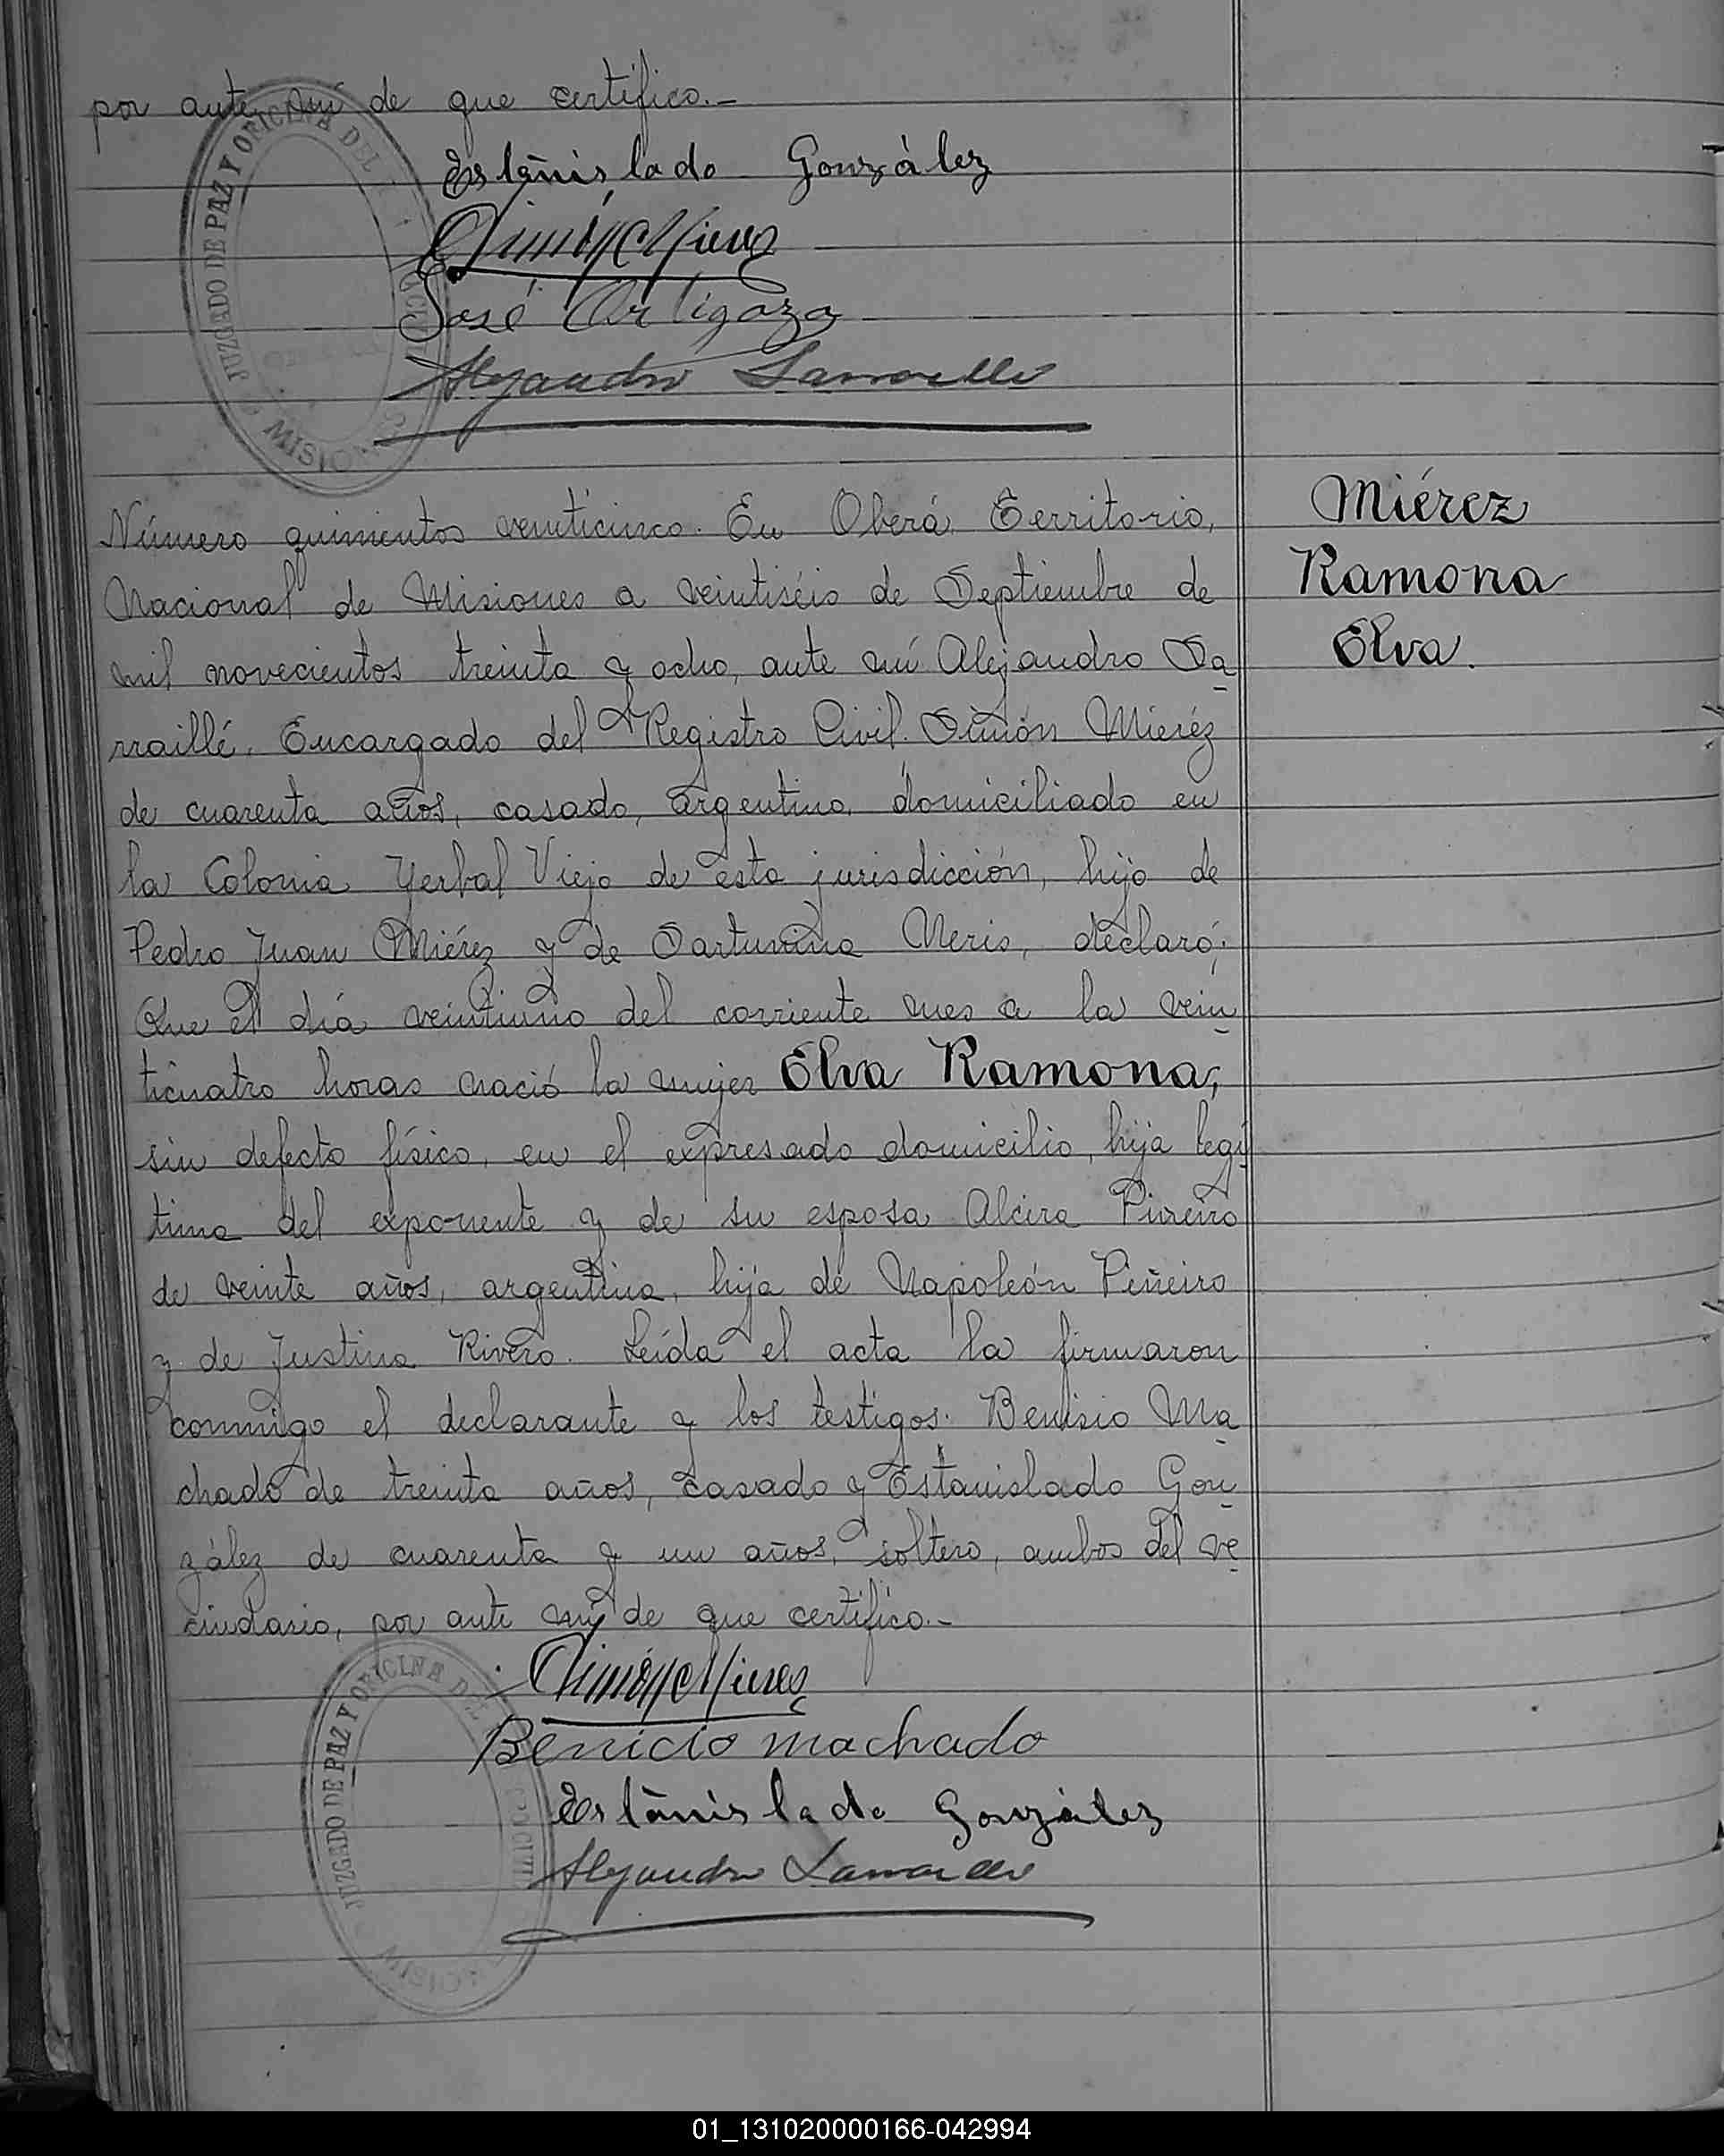 por ante mí de que certifico.-
Estanislado González
José Artigaza
Alejandro
JUZGADO DE PAZ Y OFICINA DEL
MISIONES
Número quinientos veinticinco. En Oberá, Territorio,
Nacional de Misiones a veintiséis de Septiembre de
mil novecientos treinta y ocho, ante mí Alejandro Sa
rraillé, Encargado del Registro Civil. Simón Mieréz
de cuarenta años, casado, argentino, domiciliado en
la Colonia Yerbal Viejo de esta jurisdicción, hijo de
Pedro Juan Miérez y de Sarturnina Neris, declaró:
Que el día veintiuno del corriente mes a la vein
ticuatro horas nació la mujer Elva Ramona,
sin defecto físico, en el expresado domicilio, hija legí
tima del exponente y de su esposa Alcira
de veinte años, argentina, hija de Napoleón Piñeiro
y de Justina Rivero. Leída el acta la firmaron
conmigo el declarante y los testigos: Benisio Ma
chado de treinta años, casado y Estanislado Gon
zález de cuarenta y un años, soltero, ambos del ve
cindario, por ante mí de que certifico.-
Miérez
Ramona
Elva.
Benicio Machado
Estanislado González
Alejandro
JUZGADO DE PAZ Y OFICINA DEL
01_131020000166-042994